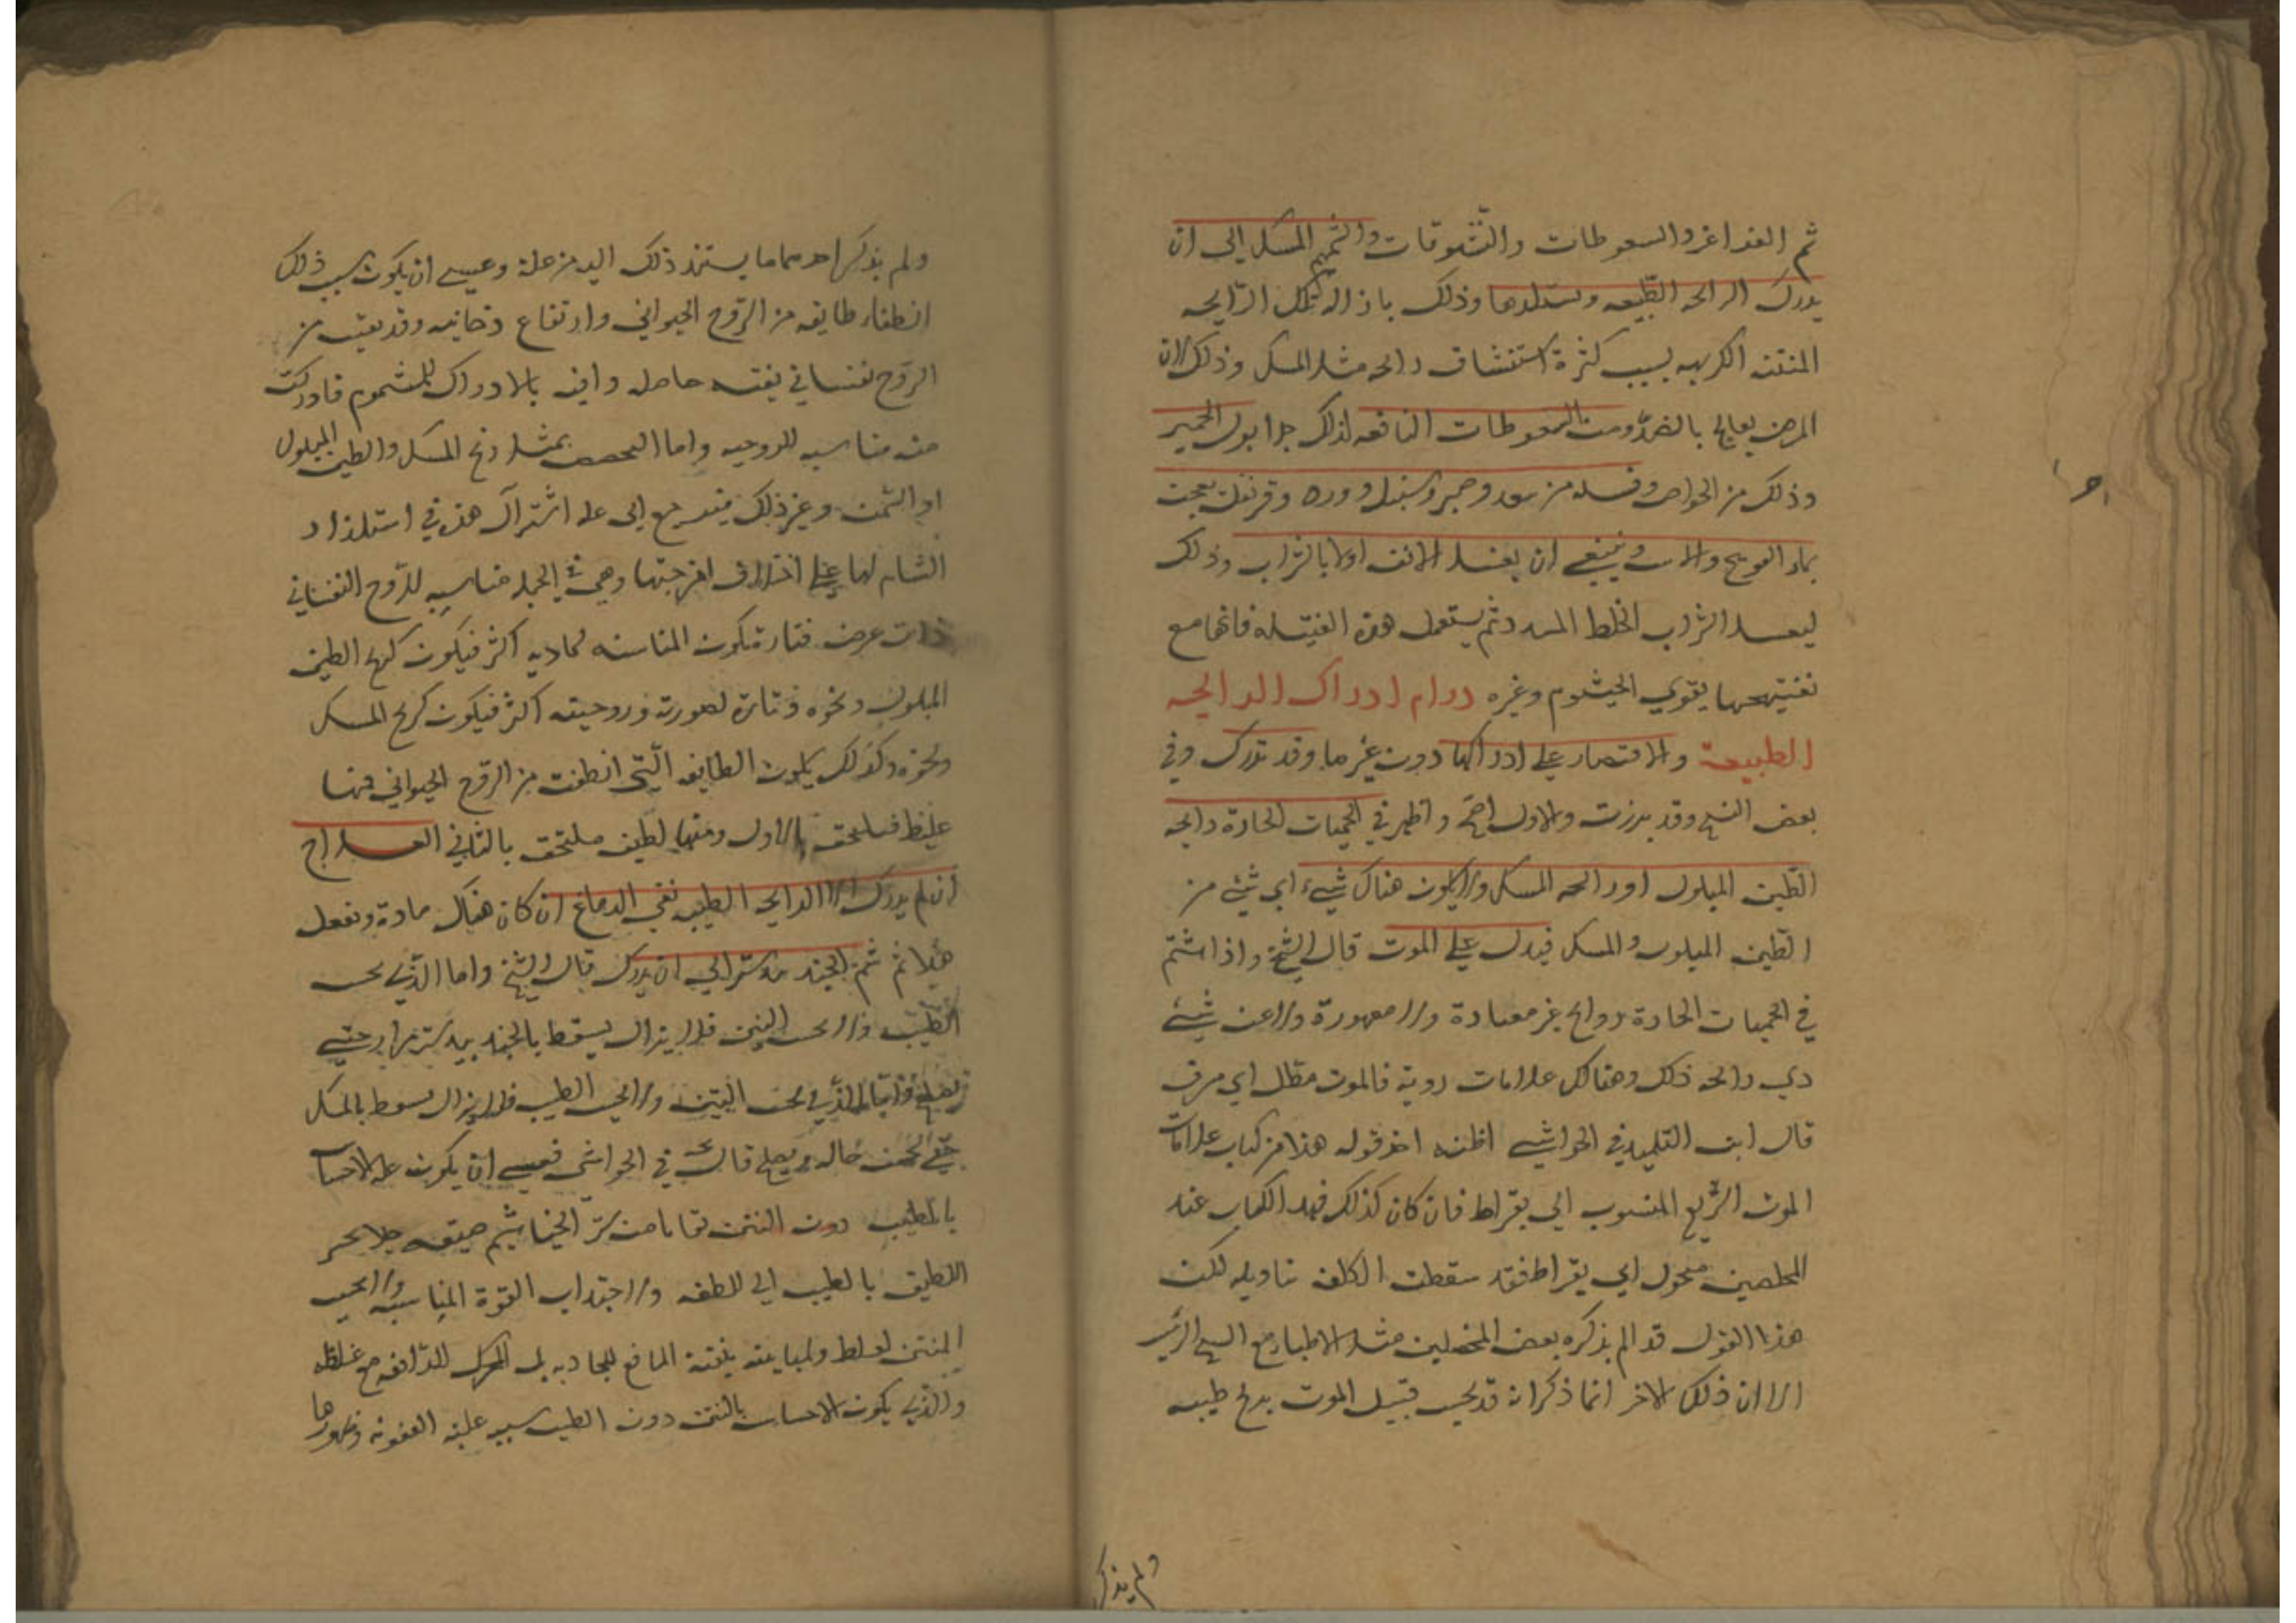 ثم الغراغر والسعوطات والنشوقات والشميم المسك الى ان
يدرك الرائحه الطيبه ويستلذها وذلك باذاله تلك الرايحه
المنتنه الكريهه بسبب كثرة استنشاق رائحه مثل المسك وذلك لان
المرض يعالج بالضد ومن السعوطات النافعه لذلك جدا بول الحمير
وذلك من الخواص وفتيله من سعد وصبر وسنبل وورد وقرنفل يعجن
بماء الفوينج والاس وينبغي ان يغسل الانف اولا بالشراب وذلك
ليغسل الشراب الخلط المسدد ثم يستعمل هذه الفتيله فانها مع
تفتيحها يقوي الخيشوم وغيره دوام ادراك الرايحه
الطيبة والاقتصار على ادراكها دون غيرها وقد تدرك وفي
بعض النسخ وقد بدرت والاول اصح واظهر في الحميات الحادة رايحه
الطين المبلول او رائحه المسك ولا يكون هناك شيء اي شئ من
الطين المبلول والمسك فيدل على الموت قال الشيخ واذا اشتم
في الحميات الحادة روايح غير معتادة ولا معهودة ولا عن شئ
ذي رائحه ذلك وهناك علامات ردية فالموت مظل اي مشرف
قال ابن التلميذ في الحواشي اظنه اخذ قوله هذا من كتاب علامات
الموت السريع المنسوب الى بقراط فان كان كذلك فهذا الكتاب عند
المحصلين منحول الى بقراط فقد سقطت الكلفه بتاويله لكن
هذا القول قد الم بذكره بعض المتحصلين مثل الاطباء مع الشيخ الرئيس
الا ان ذلك الاخر انما ذكر انه قد يحس قبيل الموت بريح طيبه
ولم يذكر
ولم يذكر احدهما ما يستند ذلك اليه من علة وعسى ان يكون سبب ذلك
انطفاء طايفه من الروح الحيواني وارتفاع دخانيه وقد بقيت من
الروح نفساني بقيه حاصله وافيه بالادراك للمشموم فادركت
منه مناسبه للروحيه واما التخصص بمثل ريح المسك والطين المبلول
او السمن وغير ذلك فيرجع الى علة اشتراك هذه في استلذاذ
الشام لها على اختلاف امزجتها وهي في الجملة مناسبه للروح النفساني
ذات عرض فتارة يكون المناسبه لماديه اكثر فيكون كريح الطين
المبلول ونحوه وتارة لصورته وروحيته اكثر فيكون كريح المسك
ونحوه وكذلك يكون الطايفه التي انطفت من الروح الحيواني فمنها
غليظ فيلحق بالاول ومنها لطيف ملتحق بالثاني العلاج
ان لم يدرك الا الرايحه الطيبه نقي الدماغ ان كان هناك مادة ونفعل
هذا ثم شم الجندبيدستر الى ان يدرك قال الشيخ واما الذي يحس
الطيب ولا يحس النتن فلا يزال يسعط بالجندبيدستر مرارا حتى
يصلح واما الذي يحس النتن ولا يحس الطيب فلا يزال يسعط بالمسك
حتى يحسن حاله ويصلح قال في الحواشي فعسى ان يكون علة الاحساس
بالطيب دون النتن
اللطيف بالطيب الى للطفه ولاجتذاب القوة المناسبه ولا يحس
المنتن لغلظه ولمباينته بنتنه المانع للجاذبه بل المحرك للدافعه مع غلظه
والذي يكون الاحساس بالنتن دون الطيب سببه غلبة العفونه وظهورها